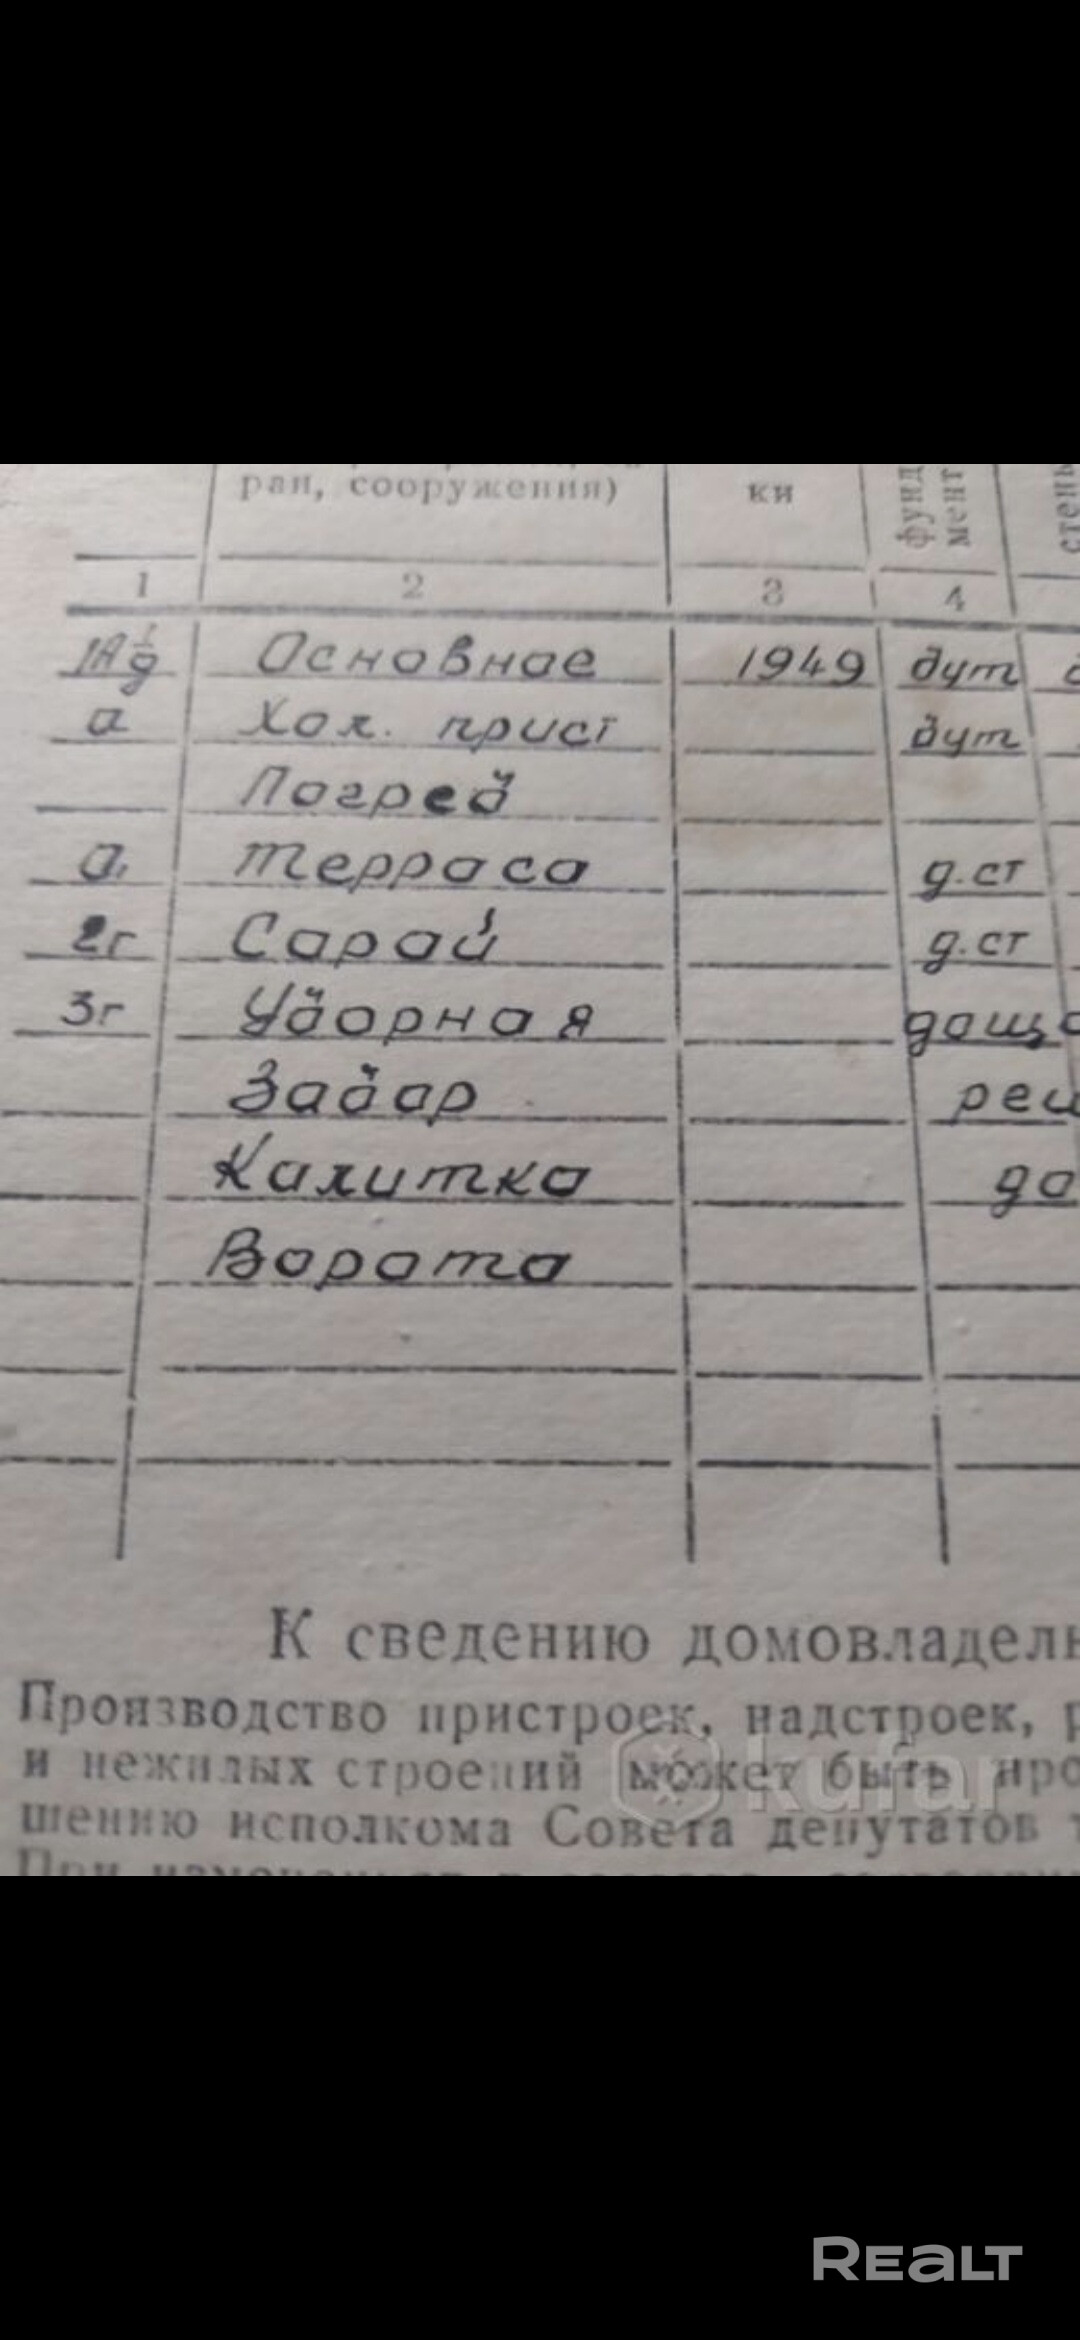 ран, сооружения)
ки
фунд
мент
стены
1 2 3 4
1А 1/д Основное 1949 бут
а Хол. прист бут
Погреб
а, Терраса д.ст
2г Сарай д.ст
3г Уборная доща
Забор реш
Калитка до
Ворота
К сведению домовладель
Производство пристроек, надстроек, р
и нежилых строений может быть про
шению исполкома Совета депутатов т
kufar
REALT